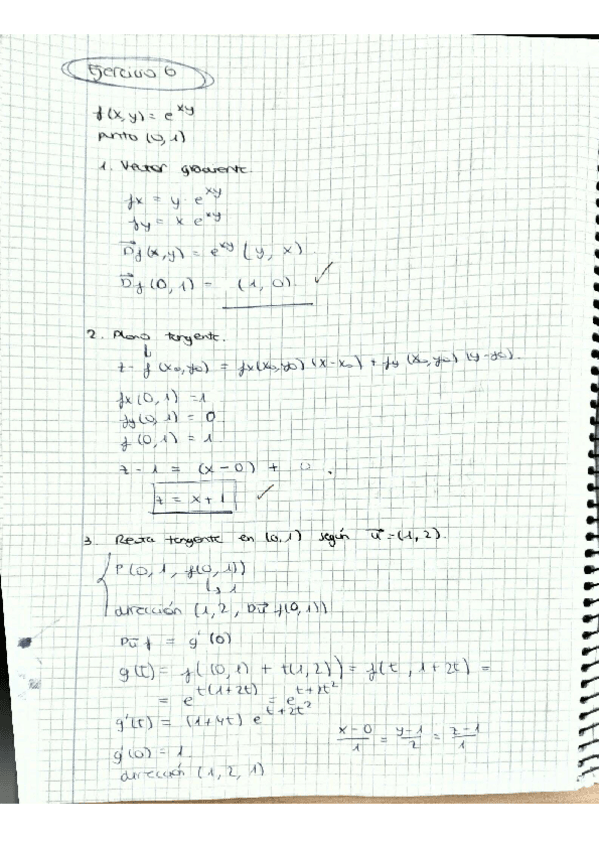 Ejercicio 6
f(x,y) = e^xy
punto (0,1)
1. Vector gradiente.
fx = y · e^xy
fy = x e^xy
D⃗f(x,y) = e^xy (y, x)
D⃗f(0,1) = (1,0). ✓
2. Plano tangente.
z - f(x₀,y₀) = fx(x₀,y₀)(x-x₀) + fy(x₀,y₀)(y-y₀).
fx(0,1) = 1
fy(0,1) = 0
f(0,1) = 1
z - 1 = (x-0) + 0.
z = x+1 ✓
3. Recta tangente en (0,1) según u⃗ = (1,2).
P(0,1, f(0,1))
↳ 1
dirección (1,2, Du⃗ f(0,1))
Du⃗ f = g'(0)
g(t) = f((0,1) + t(1,2)) = f(t, 1+2t) =
= e^t(1+2t) = e^t+2t²
g'(t) = (1+4t) e^t+2t²
x-0/1 = y-1/2 = z-1/1
g'(0) = 1
dirección (1,2,1)